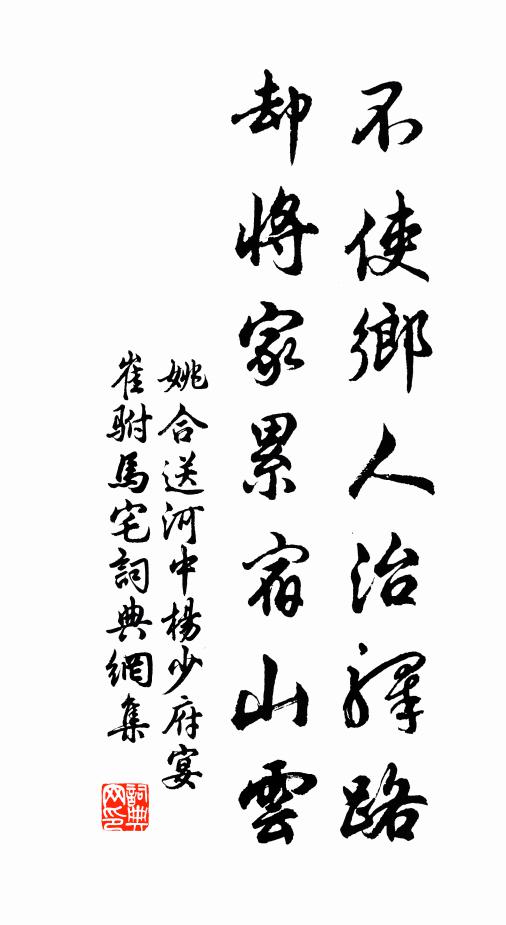 不使鄉人治驛路
却將家累宿山雲
姚合送河中楊少府宴
崔駙馬宅詞典網集
詞典网印